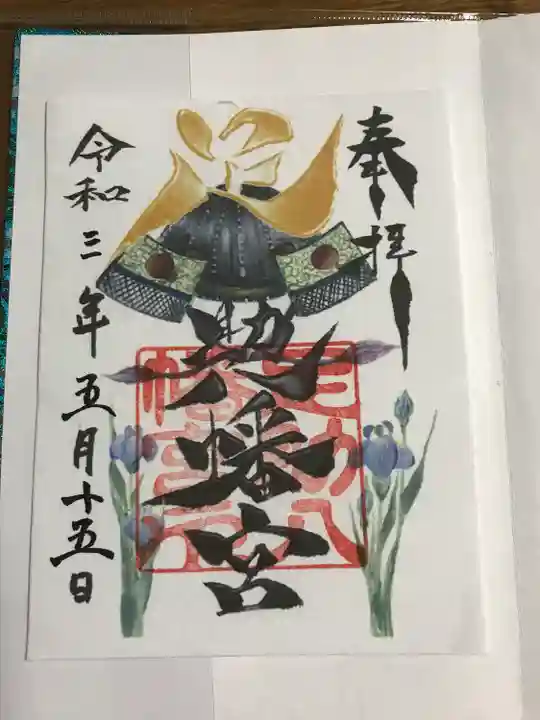 奉拝
足助八幡宮
令和三年五月十五日